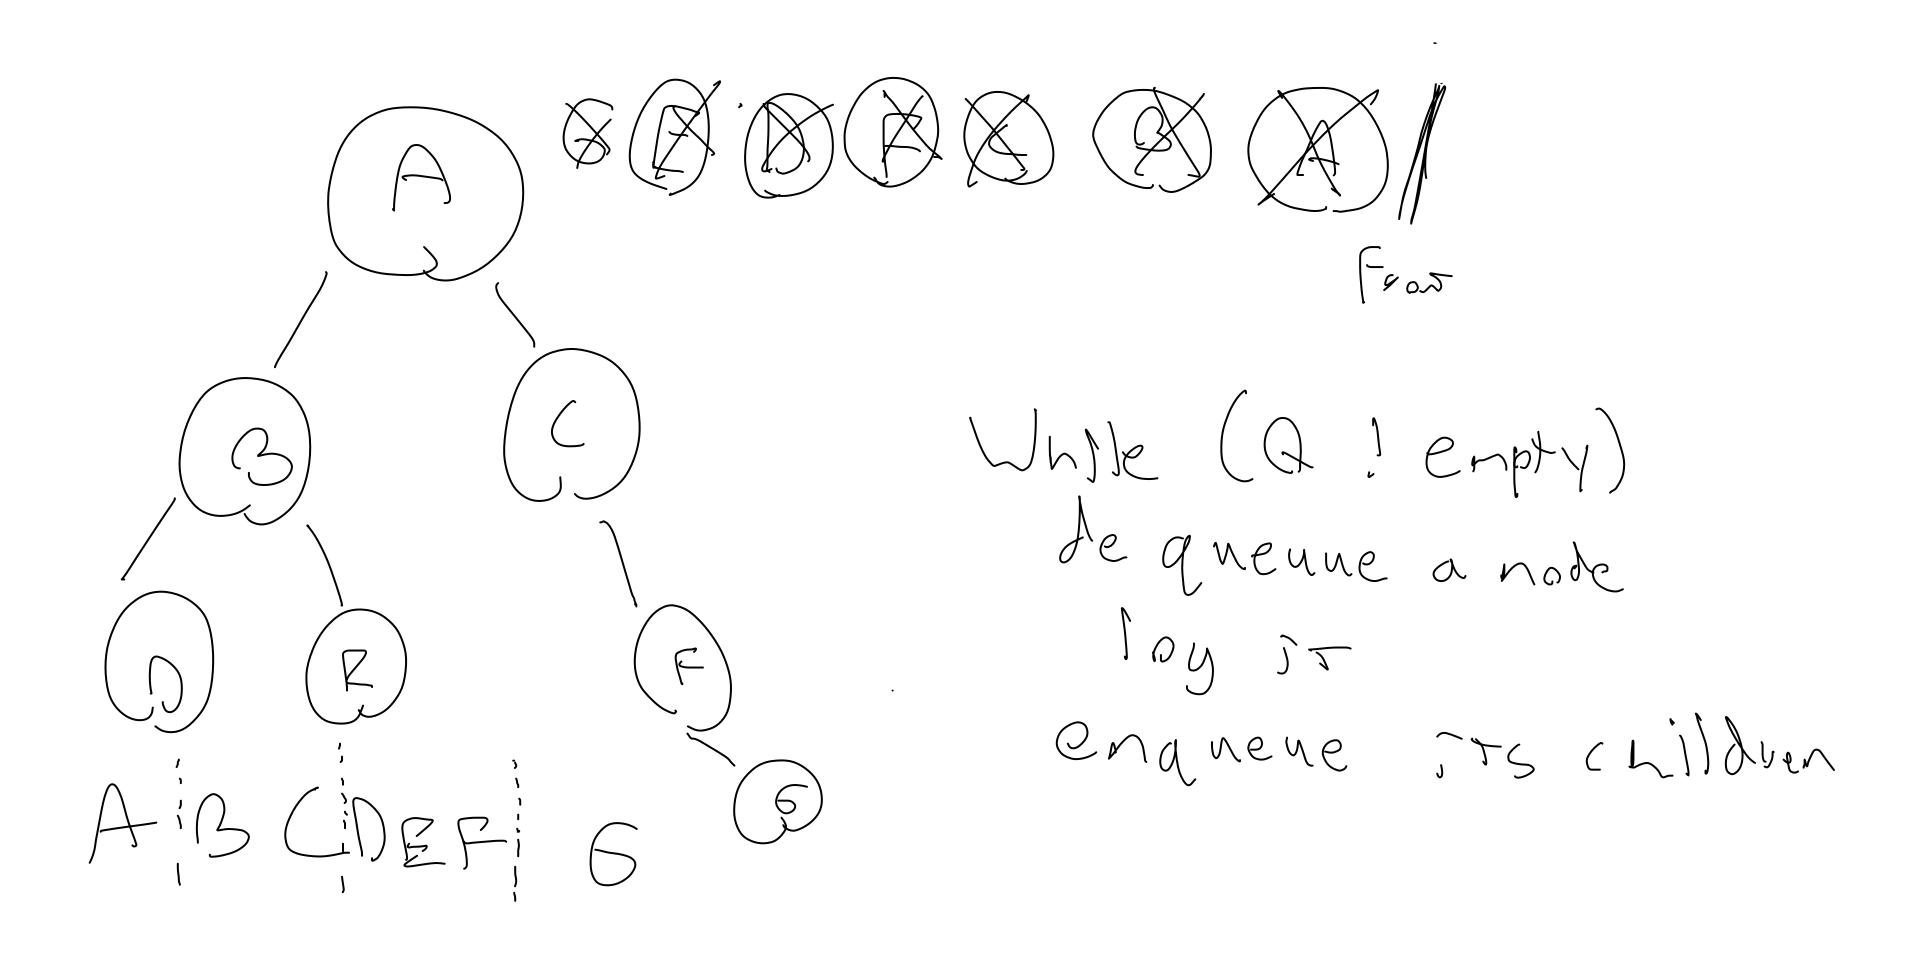 A
G E D F C B A
Front
B
C
While (Q ! empty)
de queuue a node
D
E
F
log it
enqueue its children
G
A B C D E F G